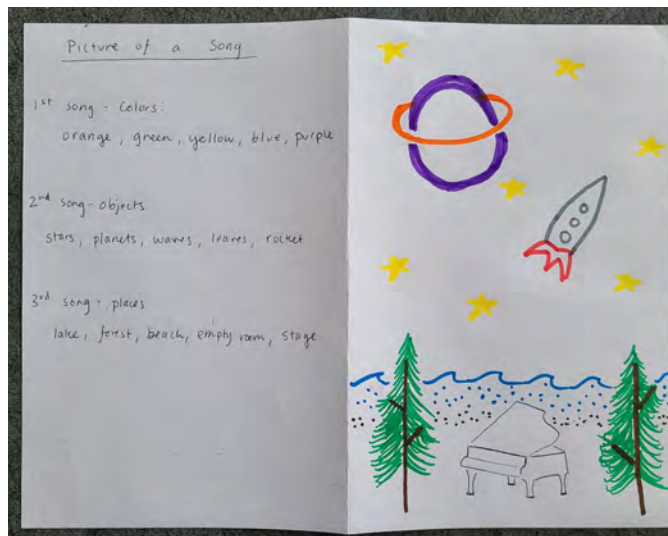 Picture of a Song
1st song - Colors:
orange, green, yellow, blue, purple
2nd song - objects
stars, planets, waves, leaves, rocket
3rd song - places
lake, forest, beach, empty room, stage